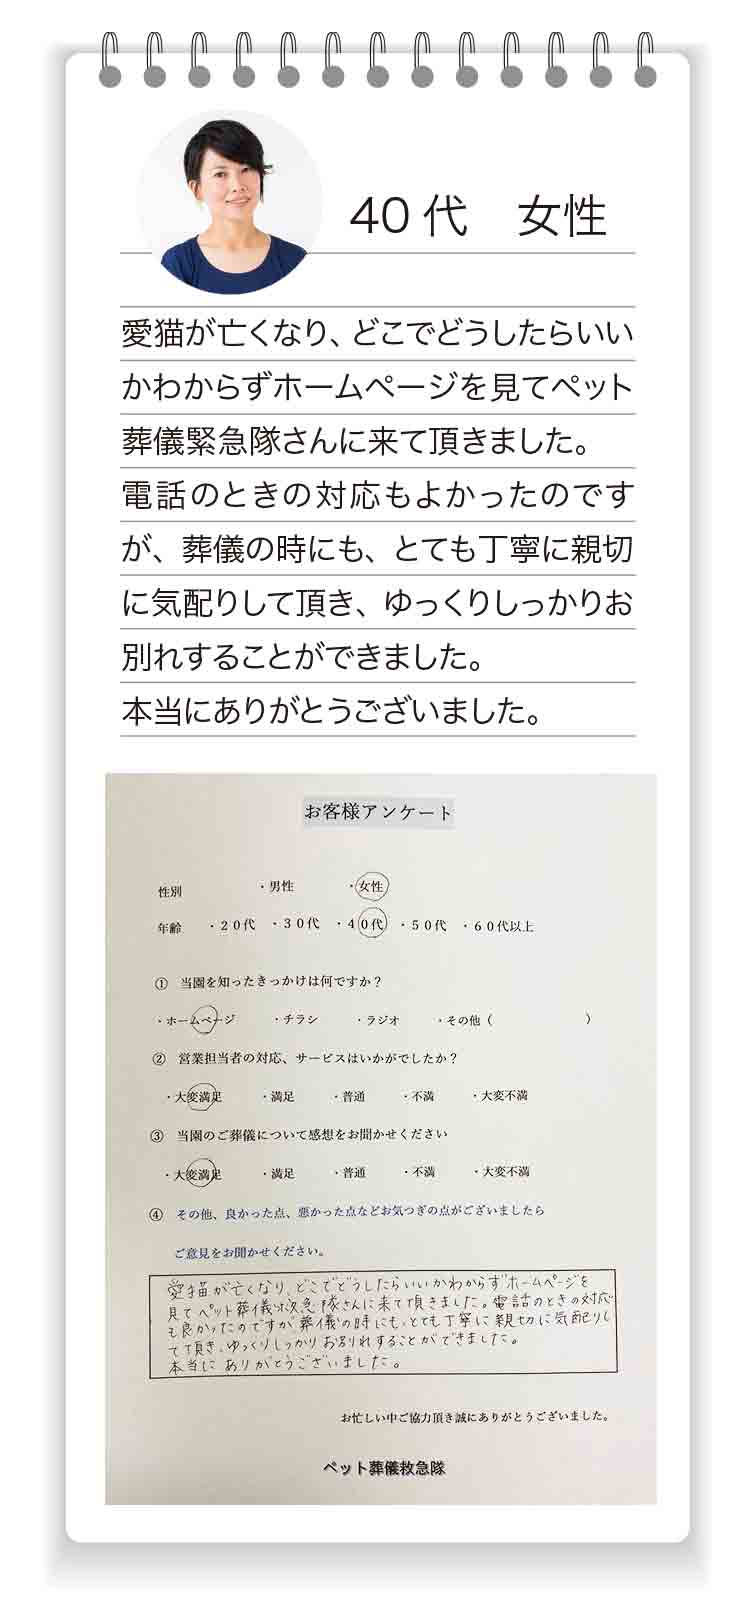 40代 女性
愛猫が亡くなり、どこでどうしたらいい
かわからずホームページを見てペット
葬儀緊急隊さんに来て頂きました。
電話のときの対応もよかったのです
が、葬儀の時にも、とても丁寧に親切
に気配りして頂き、ゆっくりしっかりお
別れすることができました。
本当にありがとうございました。
お客様アンケート
性別 ・男性 ・女性
年齢 ・20代 ・30代 ・40代 ・50代 ・60代以上
① 当園を知ったきっかけは何ですか？
・ホームページ ・チラシ ・ラジオ ・その他（ ）
② 営業担当者の対応、サービスはいかがでしたか？
・大変満足 ・満足 ・普通 ・不満 ・大変不満
③ 当園のご葬儀について感想をお聞かせください
・大変満足 ・満足 ・普通 ・不満 ・大変不満
④ その他、良かった点、悪かった点などお気つぎの点がございましたら
ご意見をお聞かせください。
愛猫が亡くなり、どこでどうしたらいいかわからずホームページを
見てペット葬儀救急隊さんに来て頂きました。電話のときの対応
も良かったのですが、葬儀の時にも、とても丁寧に親切に気配りし
て頂き、ゆっくりしっかりお別れすることができました。
本当にありがとうございました。
お忙しい中ご協力頂き誠にありがとうございました。
ペット葬儀救急隊